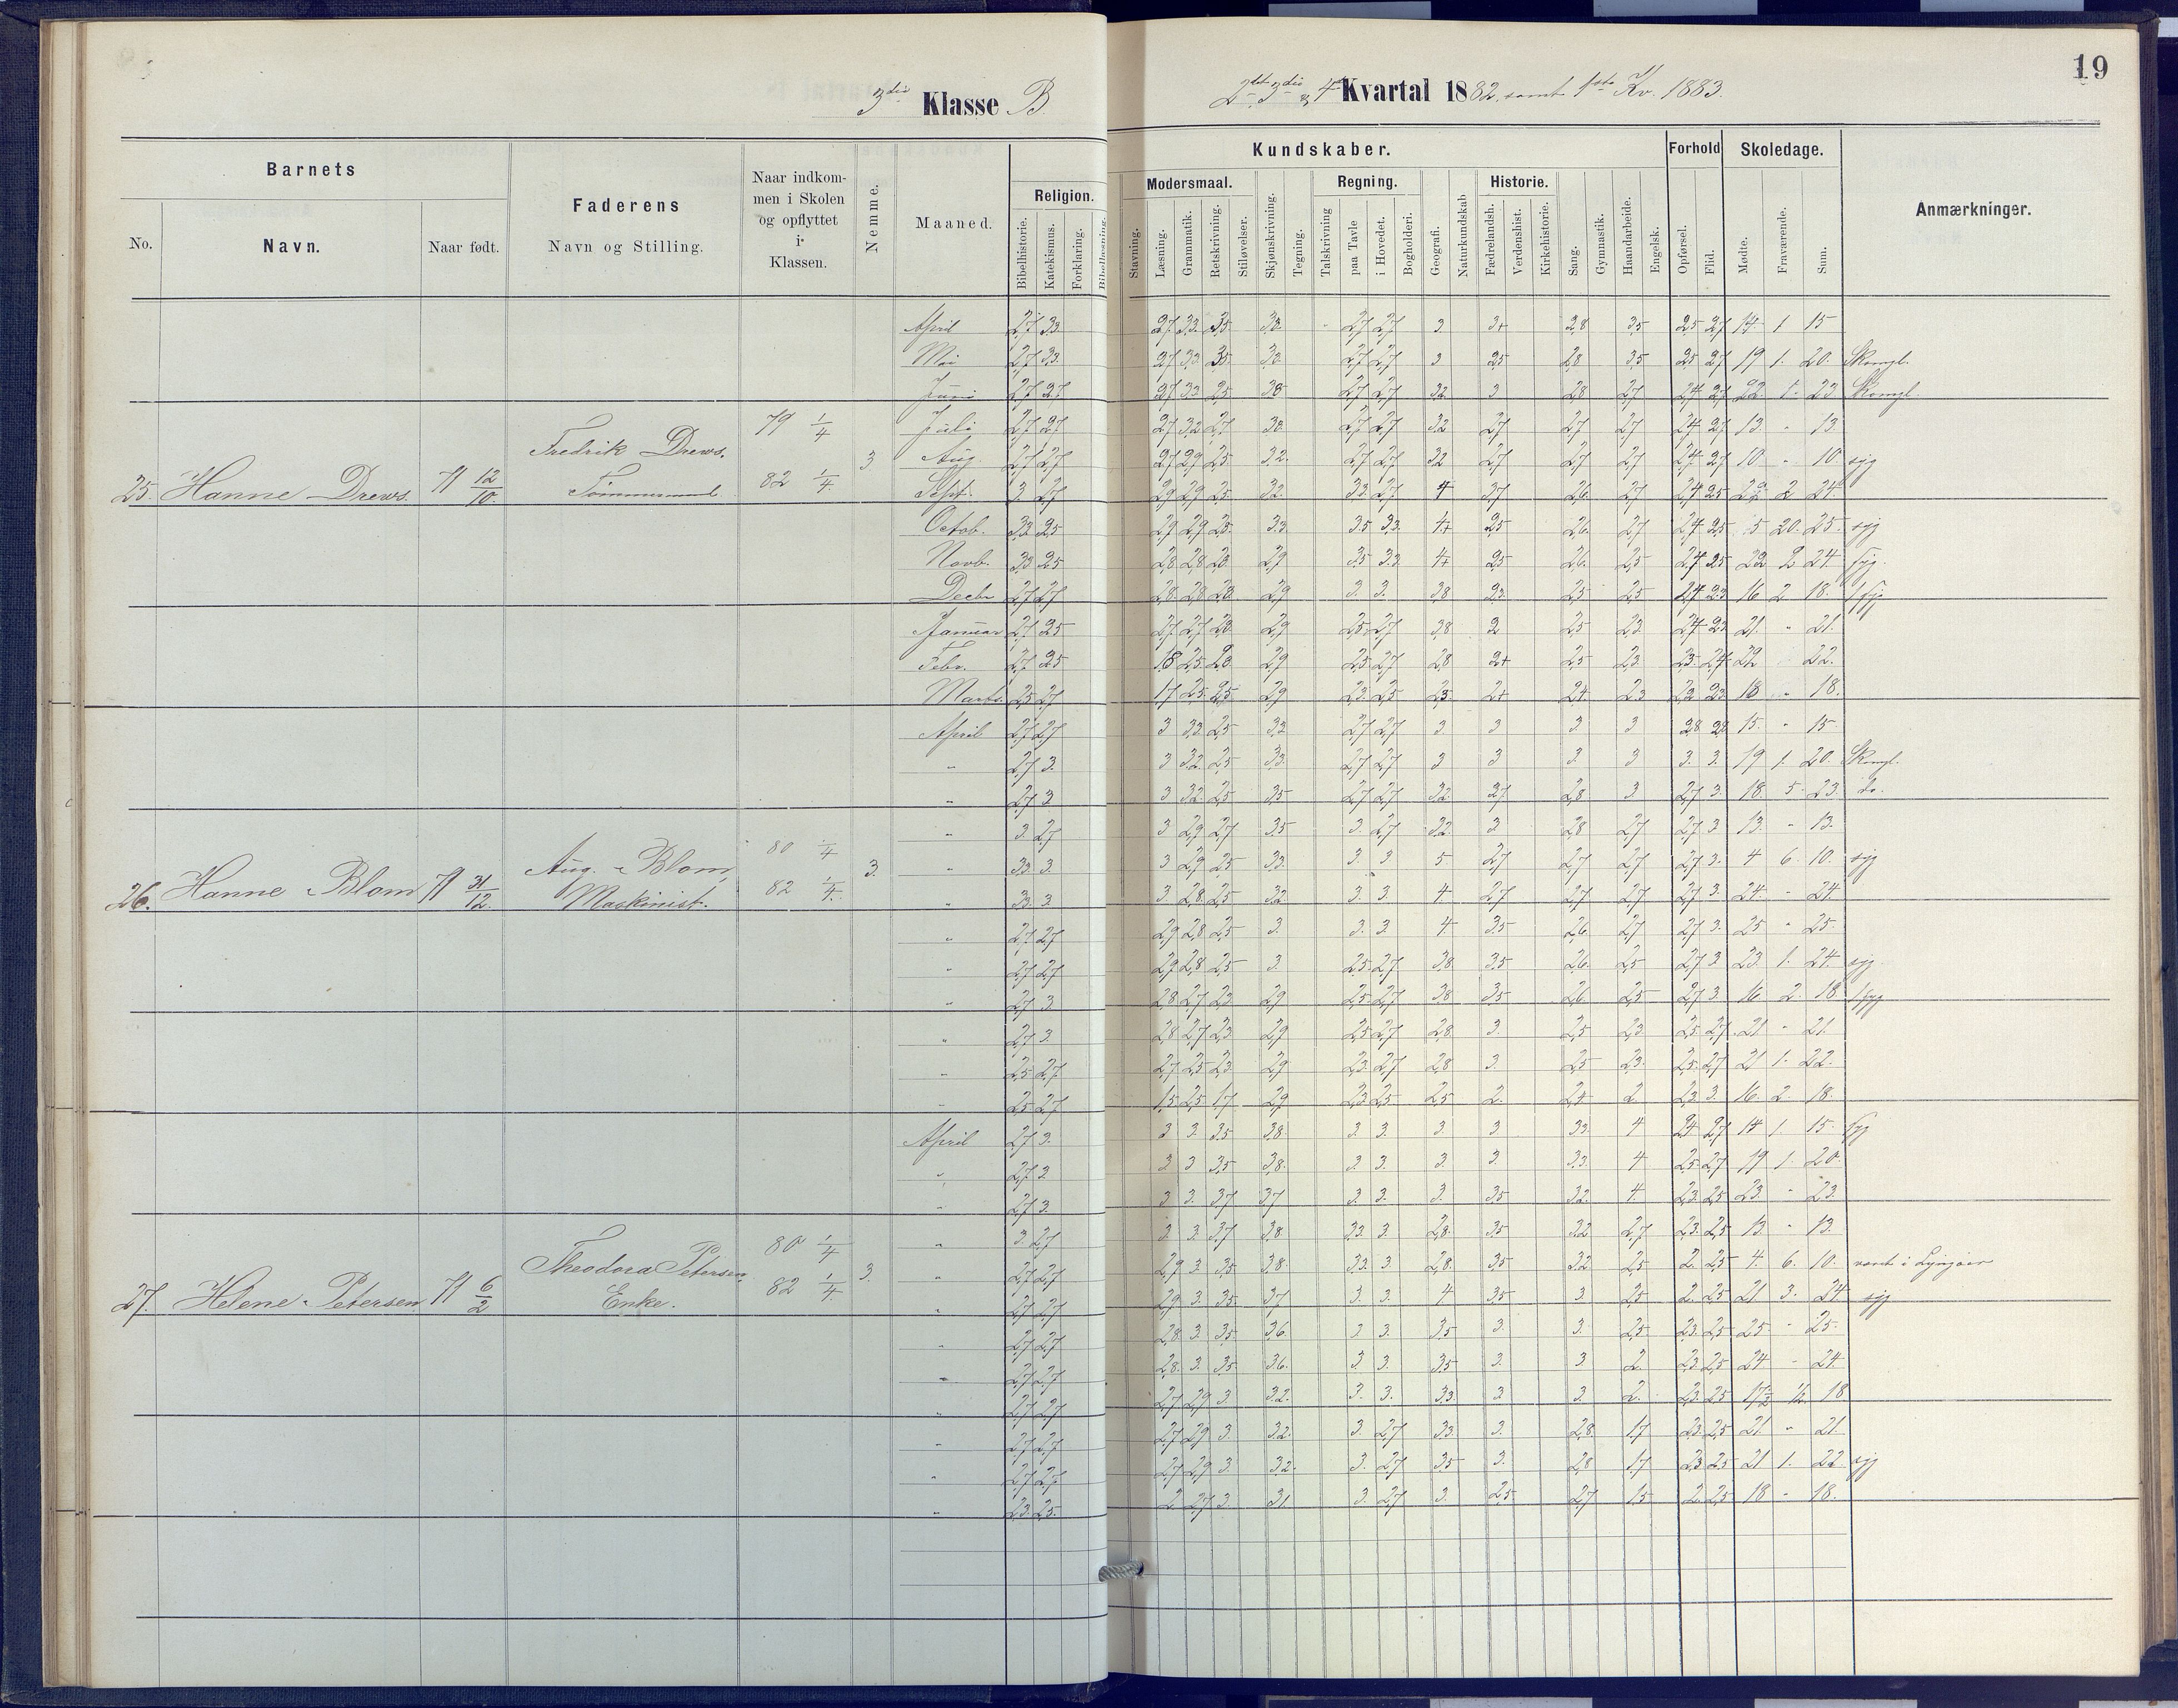 19
3die Klasse B.
2det 3die & 4de Kvartal 1882 samt 1ste Kv. 1883.
Barnets
No.
Navn.
Naar født.
Faderens
Navn og Stilling.
Naar indkom-
men i Skolen
og opflyttet
i
Klassen.
Nemme.
Maaned.
Kundskaber.
Religion.
Bibelhistorie.
Katekismus.
Forklaring.
Bibellæsning.
Modersmaal.
Stavning.
Læsning.
Grammatik.
Retskrivning.
Stiløvelser.
Skjønskrivning.
Tegning.
Regning.
Talskrivning
paa Tavle
i Hovedet.
Bogholderi.
Geografi.
Naturkundskab
Historie.
Fædrelandsh.
Verdenshist.
Kirkehistorie.
Sang.
Gymnastik.
Haandarbeide.
Engelsk.
Forhold
Opførsel.
Flid.
Skoledage.
Mødte.
Fraværende.
Sum.
Anmærkninger.
25. Hanne Drews. 71 12/10. Fredrik Drews. Tømmermand 79 1/4 82 1/4. 3
April 2,7 3,3. 2,7 3,3 3,5 3,3 2,7 2,7 3 3+ 2,8 3,5 2,5 2,7 14 1 15
Mai 2,7 3,3. 2,7 3,3 3,5 3,3 2,7 2,7 3 2,5 2,8 3,5 2,5 2,7 19 1. 20.
Juni 2,7 2,7 2,7 3,3 2,5 3,8 2,7 2,7 3,2 3 2,8 2,7 2,4 2,7 22 1 23
Juli 2,7 2,7 2,7 3,2 2,7 3,8 2,7 2,7 3,2 2,7 2,7 2,7 2,4 2,7 13 - 13
Aug. 2,7 2,7 2,7 2,9 2,5 3,2. 2,7 2,7 3,2 2,7 2,7 2,7 2,4 2,7 10 - 10 syg
Sept. 3. 2,7 2,9 2,9 2,5 3,2. 3,3 2,7 4 3,7 2,6 2,7 2,4 2,5 22 2 24
Octob. 3,3 2,5 2,9 2,9 2,5 3,3 3,5 3,3. 4+ 2,5 2,6. 2,7 2,4 2,5 5 20. 25. syg
Novb. 3,3 2,5 2,8 2,8 2,3 2,9 3,5 3,3 4+ 2,5 2,6. 2,5 2,4 2,5 22 2 24 syg.
Decbr 2,7 2,7 2,8 2,8 2,3 2,9 3 3. 3,8 2,3. 2,5 2,5 2,4 2,3 16 2 18. syg
Januar 2,7 2,5 2,7 2,7 2,3 2,9 2,5 2,7 3,8 2 2,5 2,3 2,4 2,3 21. " 21.
Febr. 2,7 2,5 1,8 2,5 2,3 2,9 2,5 2,7 2,8 2+ 2,5 2,3 2,3 2,4 22 22.
Marts. 2,5 2,7 1,7 2,5 2,5 2,9 2,3 2,5 2,3 2+ 2,4 2,3 2,2 2,3 18 " 18.
26. Hanne Blom 71 31/12. Aug. Blom, Maskinist. 80 1/4 82 1/4. 3.
April 2,7 2,7 3 3,3 2,5 3,3 2,7 2,7 3 3 3. 3 2,8 2,8 15. " 15.
" 2,7 3. 3 3,2 2,5 3,3. 2,7 2,7 3 3 3. 3 3. 3. 19 1. 20.
" 2,7 3 3 3,2 2,5 3,5 2,7 2,7 3,2 2,7 2,8 3 2,7 3. 18. 5 23. do.
" 3. 2,7 3 2,9 2,7 3,5 3. 2,7 3,2. 3 2,8 2,7 2,7 3 13. - 13.
" 3,3. 3. 3 2,9 2,5 3,3. 3. 3 5 2,7 2,7 2,7 2,7 3. 4 6. 10. syg
" 3,3. 3 3 2,8 2,5 3,2. 3. 3. 4 2,7 2,7 2,7 2,7 3. 24. - 24.
" 2,7 2,7 2,9 2,8 2,5 3. 3. 3. 4 3,5 2,6. 2,7 2,7 3. 25 " 25.
" 2,7 2,7 2,9 2,8 2,5 3. 2,5 2,7 3,8. 3,5 2,6. 2,5 2,7 3 23. 1. 24. syg.
" 2,7 3 2,8 2,7 2,3 2,9 2,5 2,7 3,8 3,5 2,6 2,5 2,7 3. 16 2. 18 syg
" 2,7 3. 2,8 2,7 2,3 2,9 2,5 2,7 2,8. 3. 2,5 2,3 2,5 2,7 21 - 21.
" 2,5 2,7. 2,7 2,5 2,3. 2,9 2,3. 2,7 2,8 3. 2,5 2,3. 2,5 2,7 21 1. 22.
" 2,5 2,7 1,5 2,5 1,7 2,9 2,3 2,5. 2,5 2. 2,4 2. 2,3 3. 16. 2. 18.
27. Helene Petersen 71 6/2 Theodora Petersen Enke. 80 1/4 82 1/4. 3.
April 2,7 3. 3 3. 3,5 3,8. 3. 3. 3. 3 3,3. 4 2,4 2,7 14 1. 15. syg
" 2,7 3 3 3 3,5 3,8. 3. 3. 3. 3. 3,3. 4 2,5 2,7 19 1. 20.
" 2,7 3. 3 3. 3,7 3,7 3. 3. 3. 3,5 3,2. 4. 2,3. 2,5 23. " 23.
" 3. 2,7 3. 3. 3,7 3,8. 3,3. 3. 2,8. 3,5 3,2 2,7 2,3. 2,5 13. " 13.
" 2,7 2,7 2,9 3. 3,5 3,8. 3,3. 3 2,8 3,5 3,2 2,5 2. 2,5 4. 6. 10. været i Lyngøer
" 2,7 2,7 2,9 3. 3,5. 3,7 3. 3. 4 3,5 3. 2,5 2. 2,5 21 3. 24. syg
" 2,7 2,7 2,8. 3. 3,5 3,6. 3 3. 3,5 3. 3. 2,5. 2,3. 2,5 25. " 25.
" 2,7 2,7 2,8. 3. 3,5. 3,6. 3 3. 3,5 3. 3 2. 2,3 2,5 24 - 24
" 2,7 2,7 2,7 2,9 3 3,2. 3. 3. 3,3. 3 3. 2. 2,3. 2,5 17½ ½. 18
" 2,7 2,7 2,7 2,9 3. 3,2. 3. 2,7 3,3. 3. 2,8. 1,7 2,3. 2,5 21. " 21.
" 2,7 2,7 2,7 2,9 3. 3,2. 3. 2,7 3,5 3. 2,8 1,7 2,3 2,5 21 1. 22 syg
" 2,3. 2,5. 2 2,7 3. 3,1 3. 2,7 3. 2,5 2,7 1,5 2. 2,5 18 - 18.